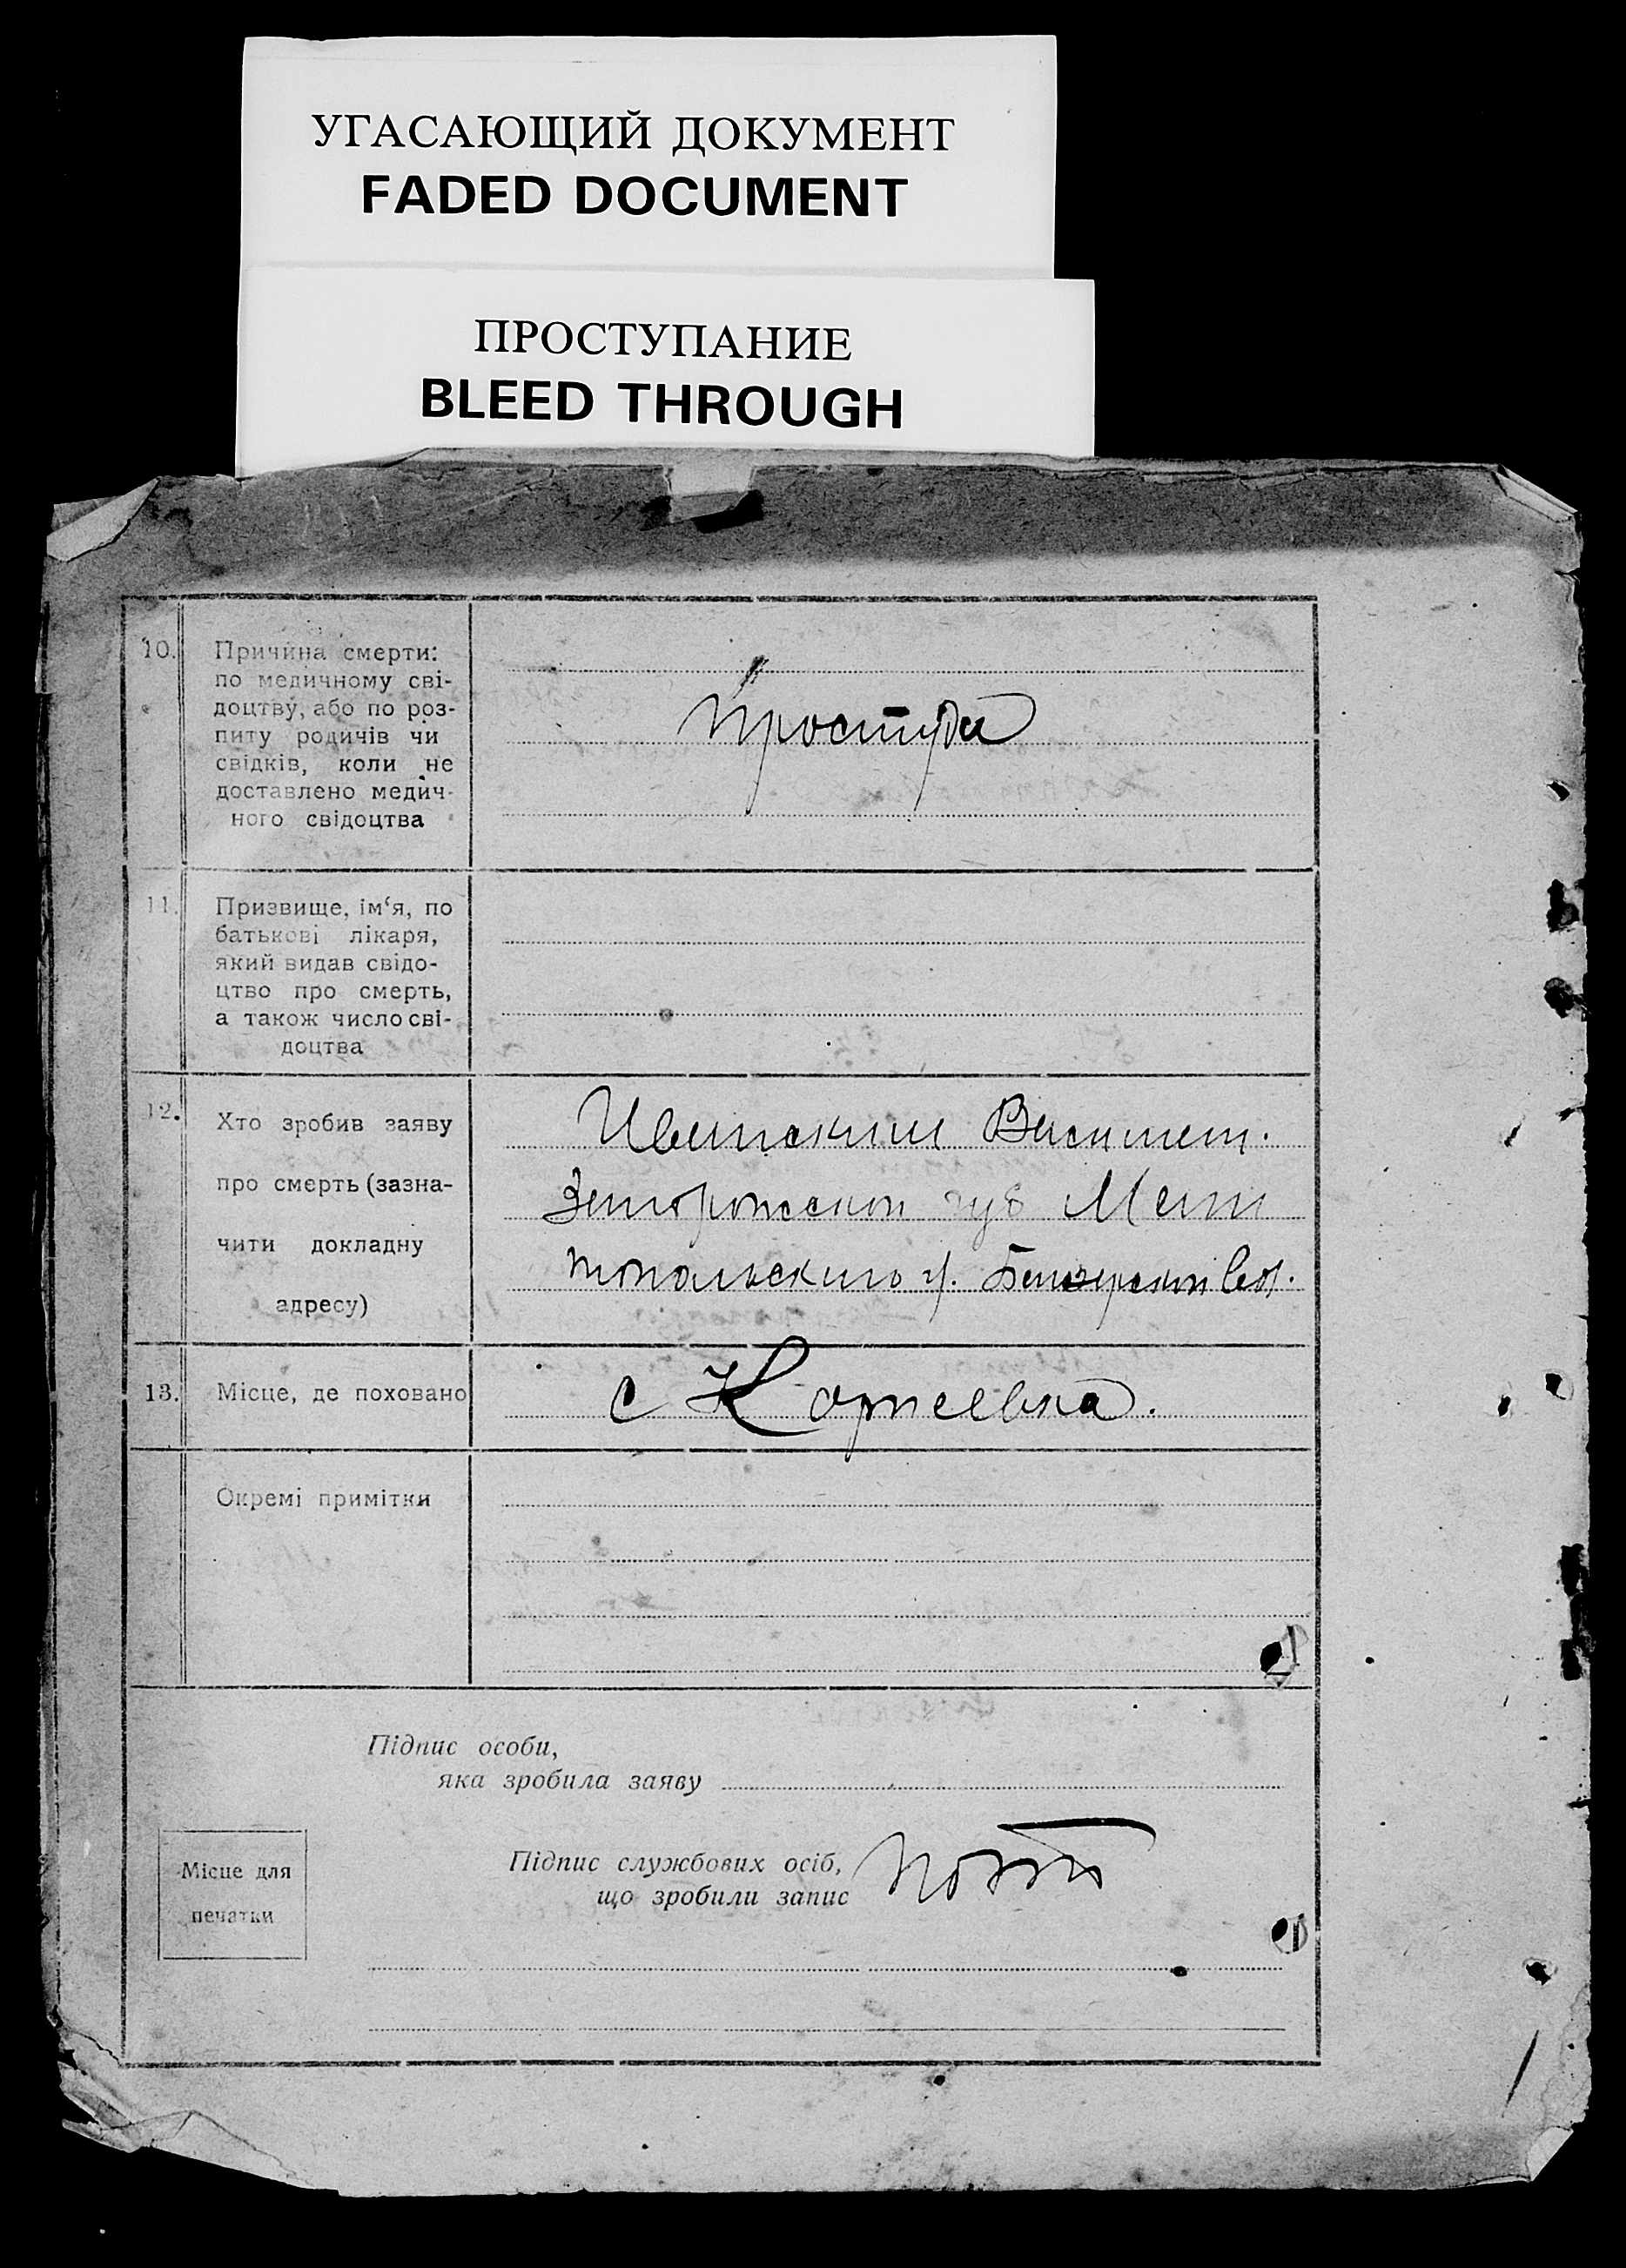 УГАСАЮЩИЙ ДОКУМЕНТ
FADED DOCUMENT
ПРОСТУПАНИЕ
BLEED THROUGH
10.
Причина смерти:
по медичному сві-
доцтву, або по роз-
питу родичів чи
свідків, коли не
доставлено медич-
ного свідоцтва
Простуда
11.
Призвище, ім‘я, по
батькові лікаря,
який видав свідо-
цтво про смерть,
а також число сві-
доцтва
12.
Хто зробив заяву
про смерть (зазна-
чити докладну
адресу)
губ Мели
топольского у.
13.
Місце, де поховано
с Корнеевка.
Окремі примітки
Підпис особи,
яка зробила заяву
Місце для
печатки
Підпис службових осіб,
що зробили запис